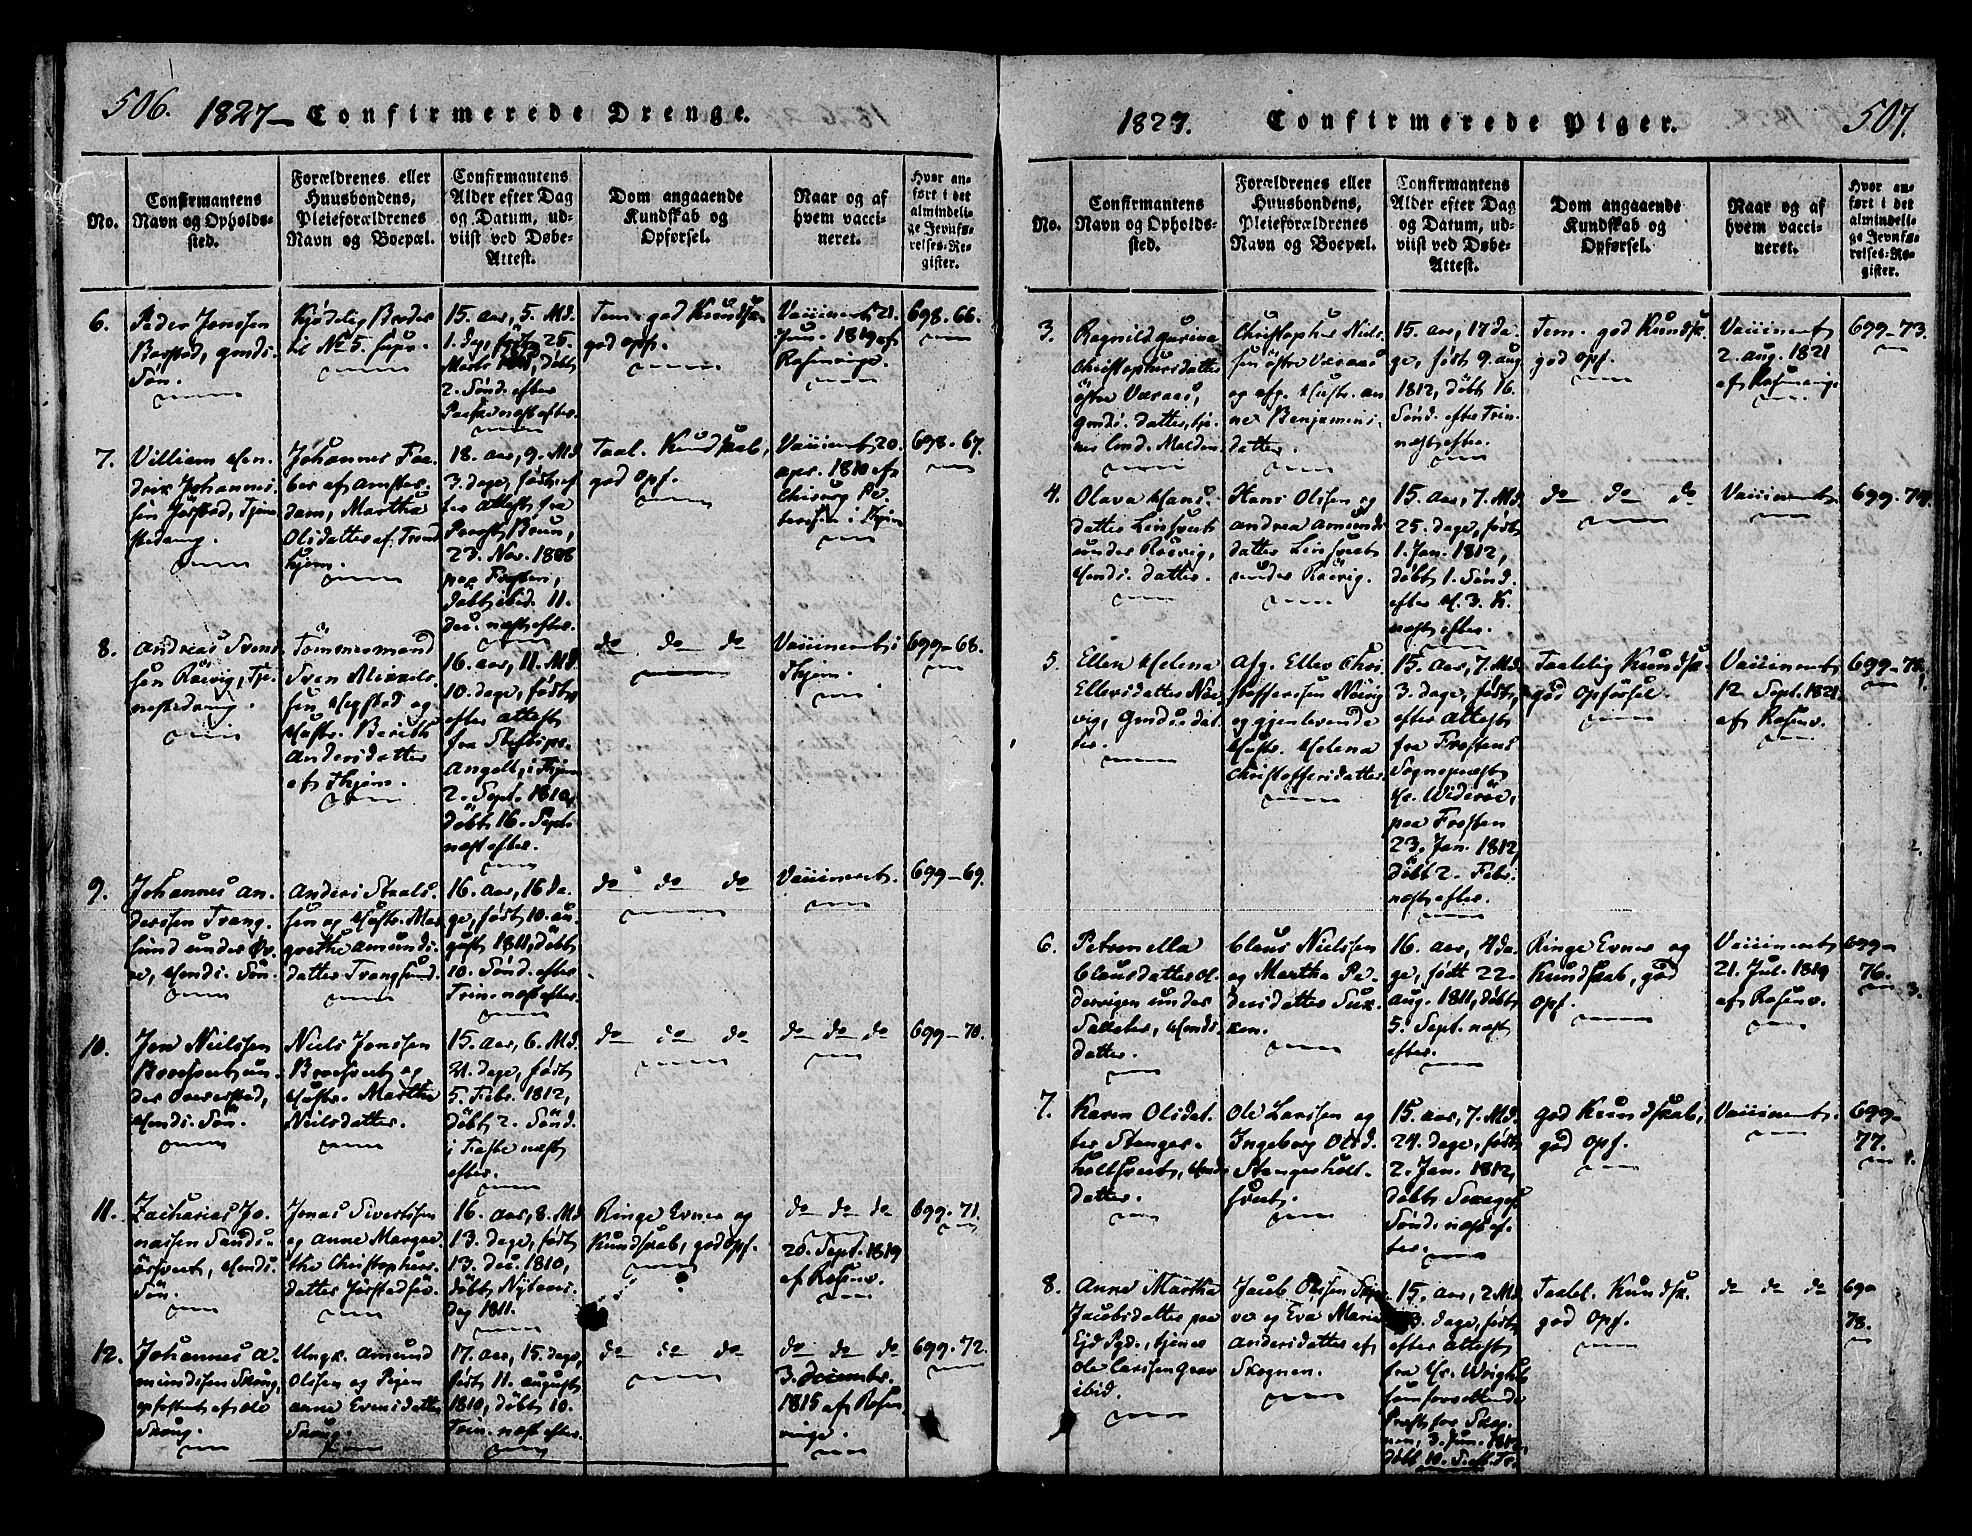 506. 1827 — Confirmerede Drenge.
No.
Confirmantens
Navn og Opholds-
sted.
Forældrenes eller
Huusbondens,
Pleieforældrenes
Navn og Boepæl.
Confirmantens
Alder efter Dag
og Datum, ud-
viist ved Døbe-
Attest.
Dom angaaende
Kundskab og
Opførsel.
Naar og af
hvem vacci-
neret.
Hvor an-
ført i det
almindeli-
ge Jevnfø-
relses-Re-
gister.
6.
Peder Jonssen
Barstad, gmds.
Søn.
Kjødelig Broder
til No 5. supr.
15. aar, 5. Md.
1. dag, født 25.
Marts 1812, døbt
2. Sønd. efter
Paaske næst efter.
Tem. god Kundsk.
god opf.
Vaccineret 21.
Jun. 1819 af
Rosenvinge.
698-66.
7.
Villiam Hen-
drik Johannes-
sen Jørstad, Tjene-
stedreng.
Johannes Fa-
ber af Amster-
dam, Martha
Olsdatter af Trond
hjem.
18. aar, 9. Md.
3. dage, født ef-
ter attest fra
Provst Brun,
23. Nov. 1808
paa Frosten,
døbt ibid. 11.
Dec. næst efter.
Taal. Kundskab,
god Opf.
Vaccineret 20.
apr. 1810 af
Chirurg Pe-
tersen i Thjem
698-67.
8.
Andreas Svend
sen Røevig, Tje-
nestedreng.
Tømmermand
Sven Mikkels-
sen Hegstad og
Hustr. Berith
Andersdatter
af Thjem.
16. aar, 11. Md.
10. dage, født,
efter attest
fra Stiftspr.
Angell, i Thjem
2. Sept. 1810,
døbt 16. Sept.
næst efter.
do do do
Vaccineret i
Thjem.
699-68.
9.
Johannes An-
derssen Trang-
sund under
Hmds. Søn.
Anders Staals-
sen og Hustr. Mar-
grethe Amunds-
datter Trangsund.
16. aar, 16 da-
ge, født 10. au-
gust 1811, døbt
10. Sønd. efter
Trin. næst efter.
do do do
Vaccineret.
699-69.
10.
Jon Nielssen
un-
der
Hmds. Søn.
Niels Jonssen
og
Hustr. Martha
Nielsdatter.
15. aar, 6. Md.
21. dage, født
5. Febr. 1812,
døbt 2. Sønd.
i Faste næst
efter.
do do do
do do do
699-70.
11.
Zacharias Jo-
nassen Sands-
Hmds.
Søn.
Jonas Sivertssen
og Anne Margre-
the Christophers-
datter
16. aar, 8. Md.
13. dage, født
13. Dec. 1810,
døbt Nytaars-
dag 1811.
Ringe Evner og
Kundskab, god opf.
do do do
20. Sept. 1819
af Rosenv.
699-71.
12.
Johannes A-
mundssen Skaug,
opfostret af Ole
Skaug.
Ungk. Amund
Olssen og Pigen
Anne Evensdatter
Skaug.
17. aar, 15. dage,
født 11. august
1810, døbt 10.
Trin. næst efter.
do do do
do do do
3. December
1815 af Rosen
vinge.
699-72.
1827. Confirmerede Piger. 507.
No.
Confirmantens
Navn og Opholds-
sted.
Forældrenes eller
Huusbondens,
Pleieforældrenes
Navn og Boepæl.
Confirmantens
Alder efter Dag
og Datum, ud-
viist ved Døbe-
Attest.
Dom angaaende
Kundskab og
Opførsel.
Naar og af
hvem vacci-
neret.
Hvor an-
ført i det
almindeli-
ge Jevnfø-
relses-Re-
gister.
3.
Ragnild Gurina
Christophersdatter
østre Væraas,
gmds. datter, tje-
ner
Christopher Niels-
sen østre Væraas
og afg. Hustr. an-
ne Benjamins-
datter.
15. aar, 17 da-
ge, født 9. aug.
1812, døbt 16.
Sønd. efter Trin.
næst efter.
Tem. god Kundsk.
god Opf.
Vaccineret
2. aug. 1821
af Rosenving.
699-73.
4.
Olava Hans-
datter
under Røevig,
Hmds. datter.
Hans Olssen og
Andrea Amunds-
datter
under Røevig.
15. aar, 7. Md.
25. dage, født
1. Jan. 1812,
døbt 1. Sønd.
efter H. 3. K.
næst efter.
do do do
Vaccineret.
699-74.
5.
Ellen Helena
Ellersdatter Røe-
vig, Gmds. dat-
ter.
Afg. Eller Chri-
stofferssen Røevig
og gjenlevende
Hustr. Helena
Christoffersdatter.
15. aar, 7. Md.
3. dage, født,
efter attest
fra Frostens
Sognepræst
Hr. Widerøe,
paa Frosten
23. Jan. 1812,
døbt 2. Febr.
næst efter.
Taalelig Kundska.
god opførsel.
Vaccineret
12 Sept. 1821.
af Rosenv.
699-75.
6.
Petronella
Clausdatter
under
Hmds.
datter.
Claus Nielssen
og Martha Pe-
dersdatter
16. aar, 4 da-
ge, født 22.
aug. 1811, døbt
5. Sept. næst
efter.
Ringe Evner og
Kundskab, god
opf.
Vaccineret
21. Jul. 1819
af Rosenv.
699-
76.
7.
Karen Olsdat-
ter Stenges-
Hmds.
datter.
Ole Larssen og
Ingeborg Olsd.
15. aar, 7. Md.
24. dage, født
2. Jan. 1812,
døbt
Sønd. næst ef-
ter.
god Kundskab,
god opf.
Vaccineret.
699-
77.
8.
Anne Martha
Jacobsdatter paa
tjener
Ole Larssen
ibid.
Jacob Olssen
og Eva Marie
Andersdatter af
Skognen.
15. aar, 2 Md.
dage, født,
efter attest
fra Hr. Wright
Præst for Skog-
nen, 3. Jun. 1812,
døbt
Taalel. Kundsk.
god Opf.
do do do
69
78.